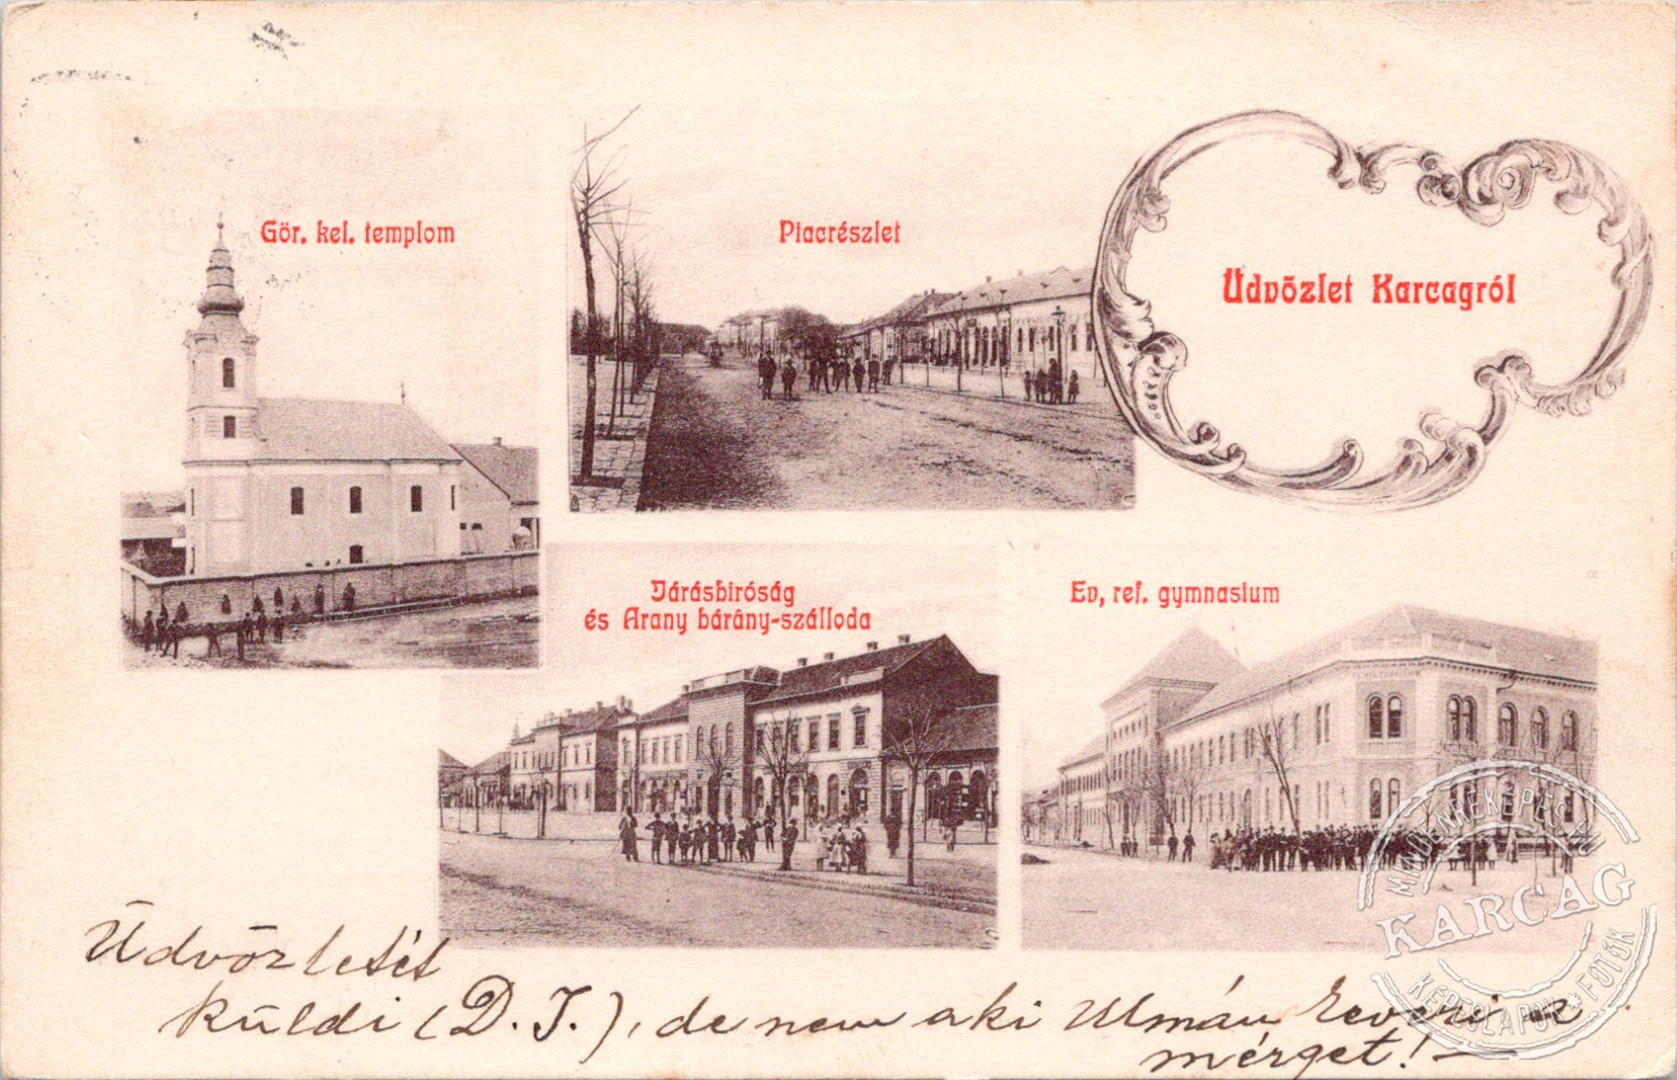 Gör. kel. templom
Piacrészlet
Üdvözlet Karcagról
Járásbiróság
és Arany bárány-szálloda
Ev, ref. gymnasium
Üdvözletét
küldi (D. J.), de nem aki Ulmán keveri a
mérget! —
MINDENKÉPPEN
KARCAG
KÉPESLAPOK * FOTÓK